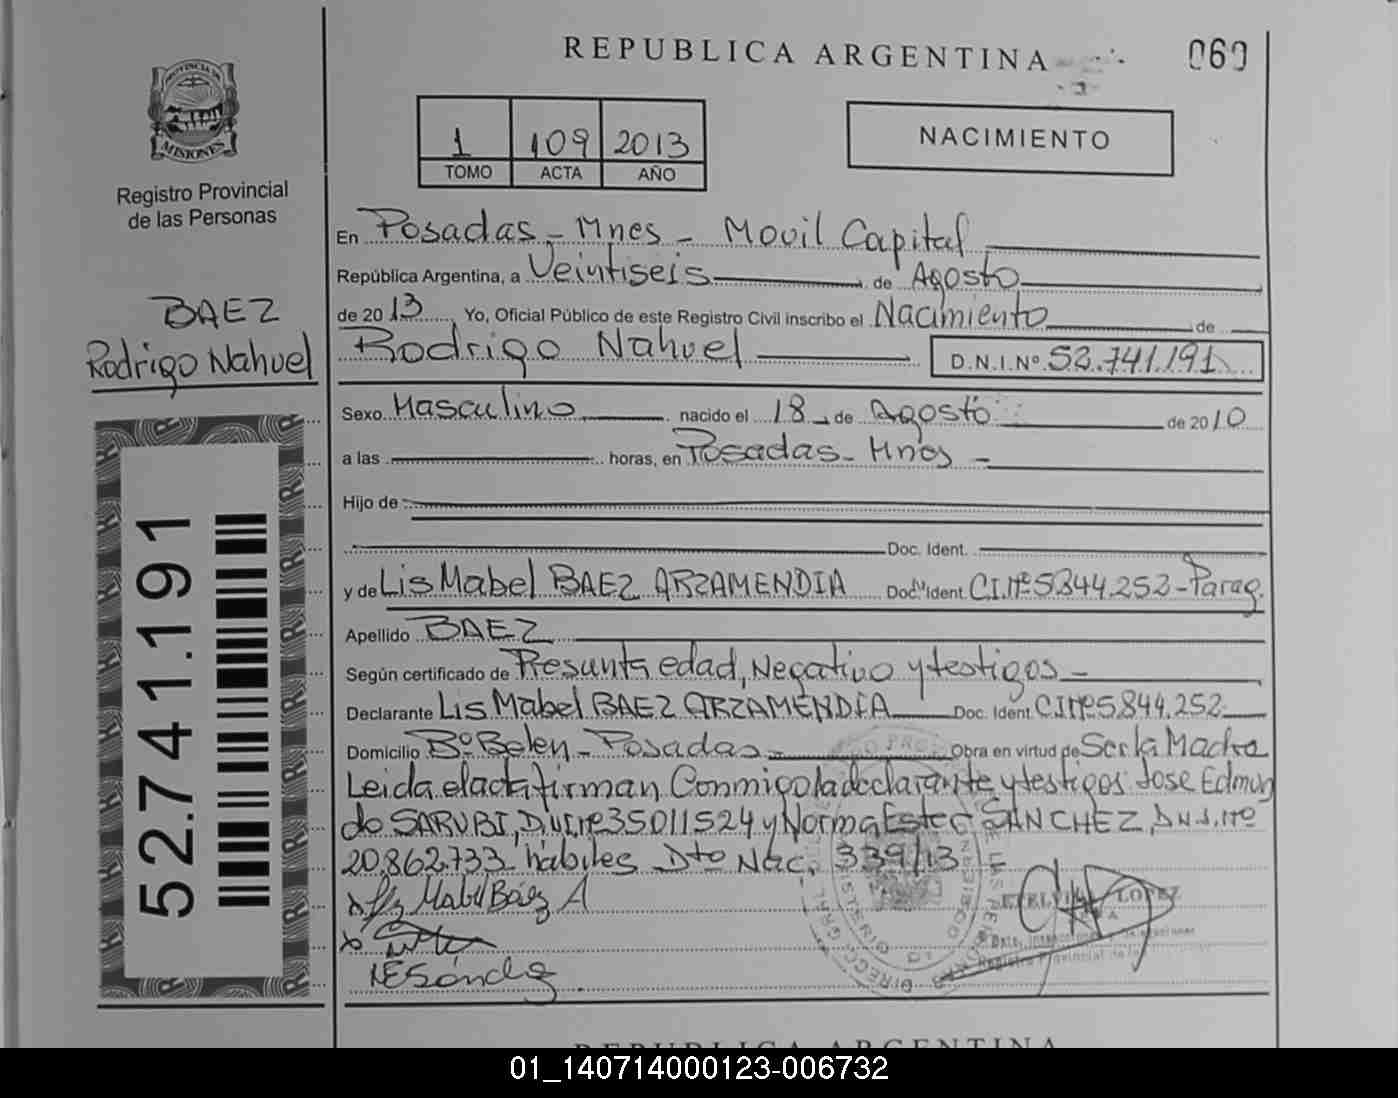 REPUBLICA ARGENTINA
060
PROVINCIA DE
MISIONES
Registro Provincial
de las Personas
1 109 2013
TOMO ACTA AÑO
NACIMIENTO
BAEZ
Rodrigo Nahuel
52.741.191
En Posadas - Mnes - Movil Capital
República Argentina, a Veintiseis de Agosto
de 2013 Yo, Oficial Público de este Registro Civil inscribo el Nacimiento de
Rodrigo Nahuel D.N.I.Nº 52.741.191
Sexo Masculino nacido el 18 de Agosto de 2010
a las horas, en Posadas - Mnes -
Hijo de
Doc. Ident.
y de Lis Mabel BAEZ ARZAMENDIA Doc. Ident. CI.Nº 5844.252 - Parag.
Apellido BAEZ
Según certificado de Presunta edad, Negativo y testigos -
Declarante Lis Mabel BAEZ ARZAMENDIA Doc. Ident. CI Nº 5844.252
Domicilio Bº Belen - Posadas - Obra en virtud de Ser la Madre
Leida el acta firman Conmigo la declarante y testigos Jose Edmun
do SARUBI, D.N.I.Nº 35011524 y Norma Ester SANCHEZ, D.N.I.Nº
20.862.733 habiles Dto Nac. 339/13 -
x Lis Mabel Báez A
x
NESánchez
LOPEZ
REPUBLICA ARGENTINA
01_140714000123-006732